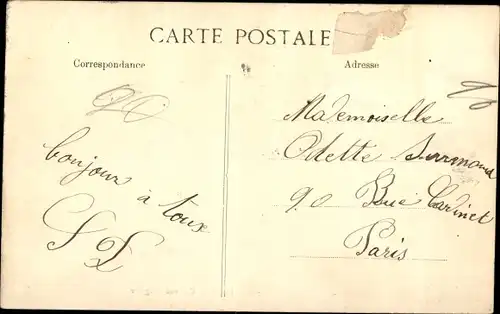 CARTE POSTALE
Correspondance
Adresse
bonjour à tous
Mademoiselle
Odette
90 Rue Cardinet
Paris